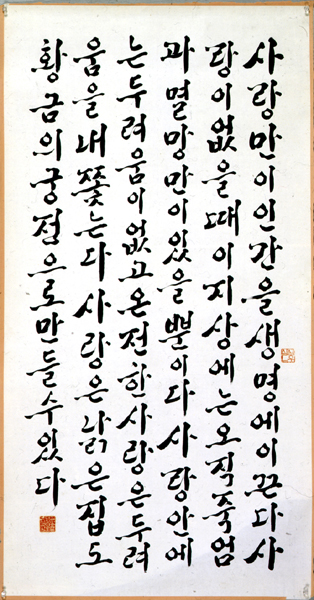 사랑만이인간을생명에이끈다사
랑이없을때이지상에는오직죽엄
과멸망만이있을뿐이다사랑안에
는두려움이없고온전한사랑은두려
움을내쫓는다사랑은낡은집도
황금의궁전으로만들수있다